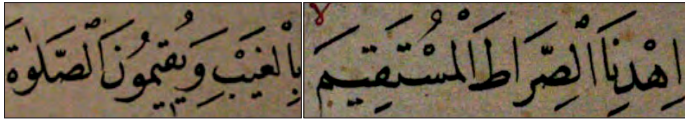 اِهْدِنَا الصِّرَاطَ الْمُسْتَقِيمَ
بِالْغَيْبِ وَيُقِيمُونَ الصَّلٰوةَ